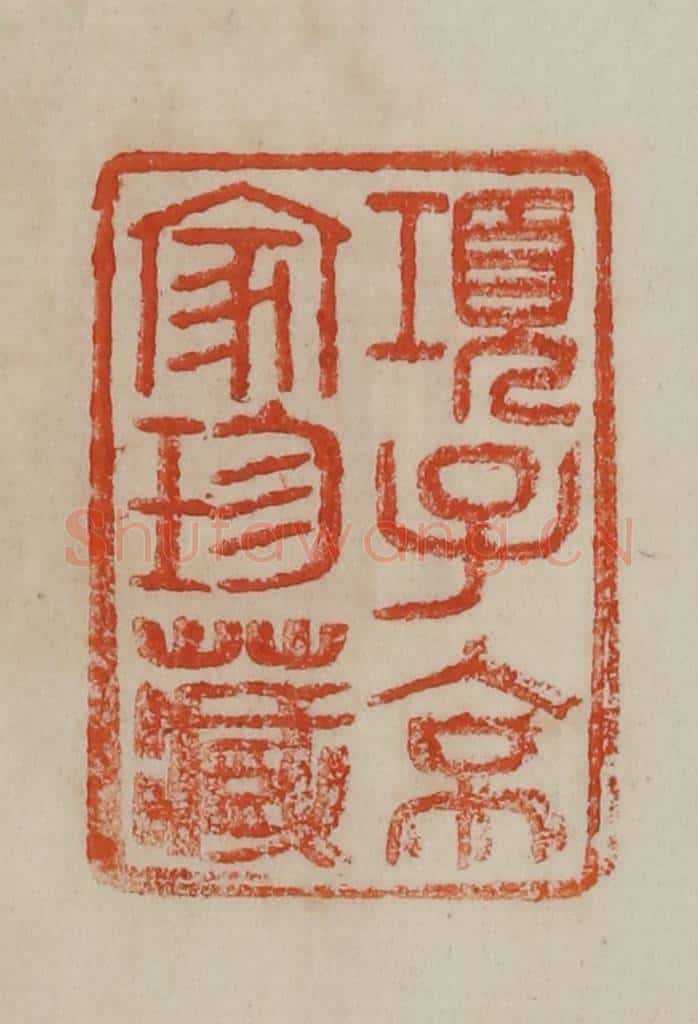 項子京
家珍藏
Shufawang.CN